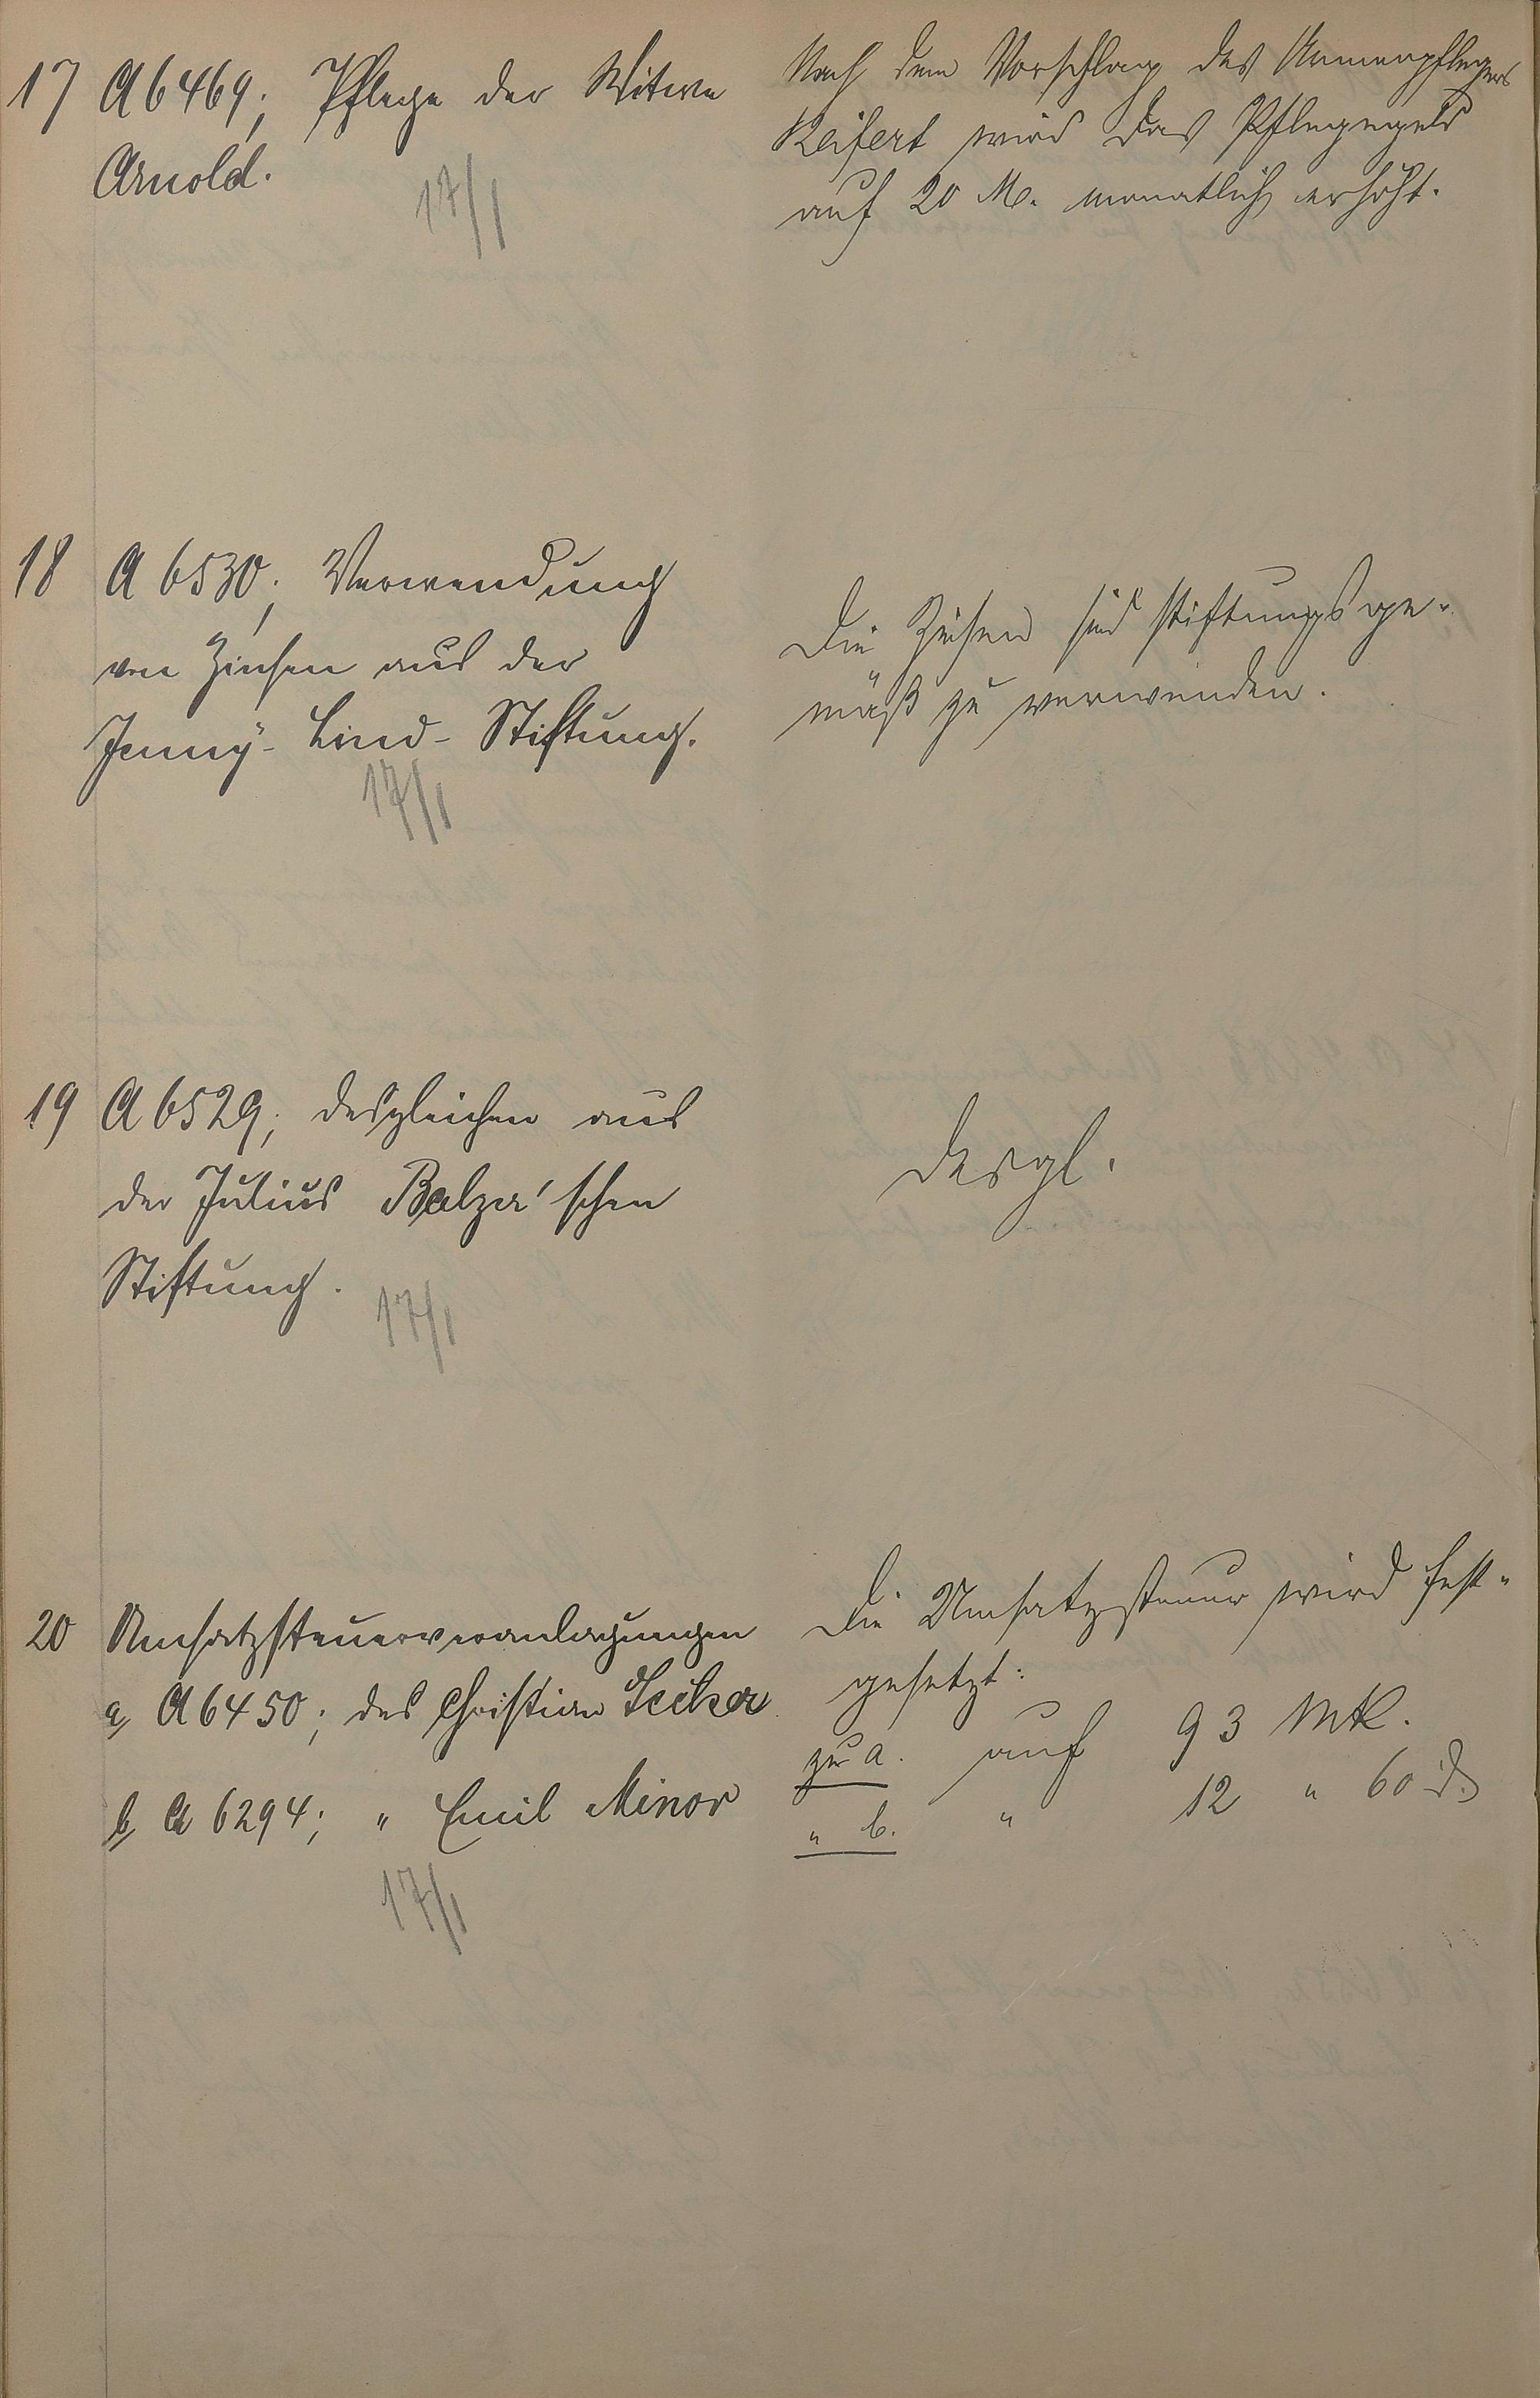 17 A 6469; Pflege der Witwe
Arnold.
17/I
Nach dem Vorschlag des Armenpflegers
Reifert wird das Pflegegeld
auf 20 M. monatlich erhöht.
18 A 6530; Verwendung
von Zinsen aus der
Jenny-Lind-Stiftung.
17/I
Die Zinsen sind stiftungsge-
mäß zu verwenden.
19 A 6529; desgleichen aus
der Julius Balzer'schen
Stiftung.
17/I
desgl.
20 Umsatzsteuerveranlagungen
a, A 6450; des Christian
b, A 6294; " Emil Minor
17/I
Die Umsatzsteuer wird fest-
gesetzt:
zu a. auf 93 Mk.
" b. " 12 " 60 ₰